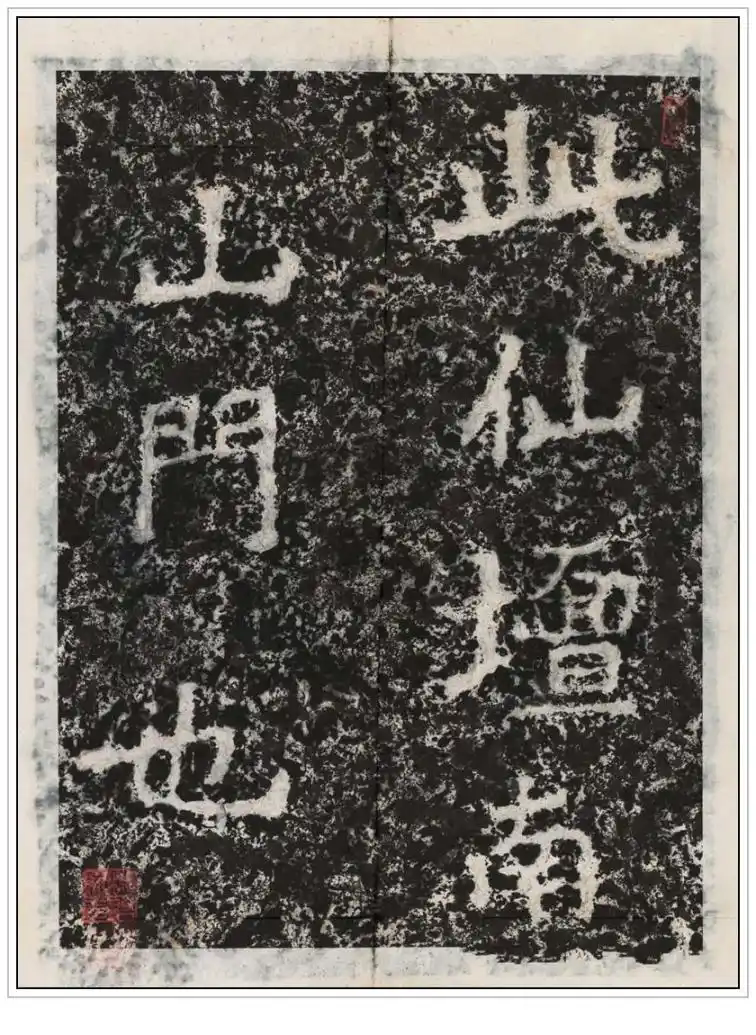 此仙壇南
山門也